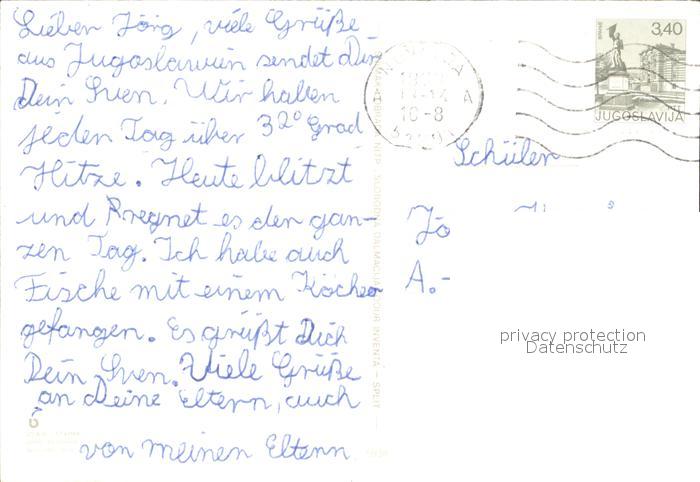 Lieber Jörg, viele Grüße
aus Jugoslawien sendet Dir
Dein Sven. Wir haben
jeden Tag über 32° Grad
Hitze. Heute blitzt
und Rregnet es den gan-
zen Tag. Ich habe auch
Fische mit einem Köcher
gefangen. Es grüßt Dich
Dein Sven. Viele Grüße
an Deine Eltern, auch
von meinen Eltern
16-8
3,40
JUGOSLAVIJA
Schüler
Jö
A.-
privacy protection
Datenschutz